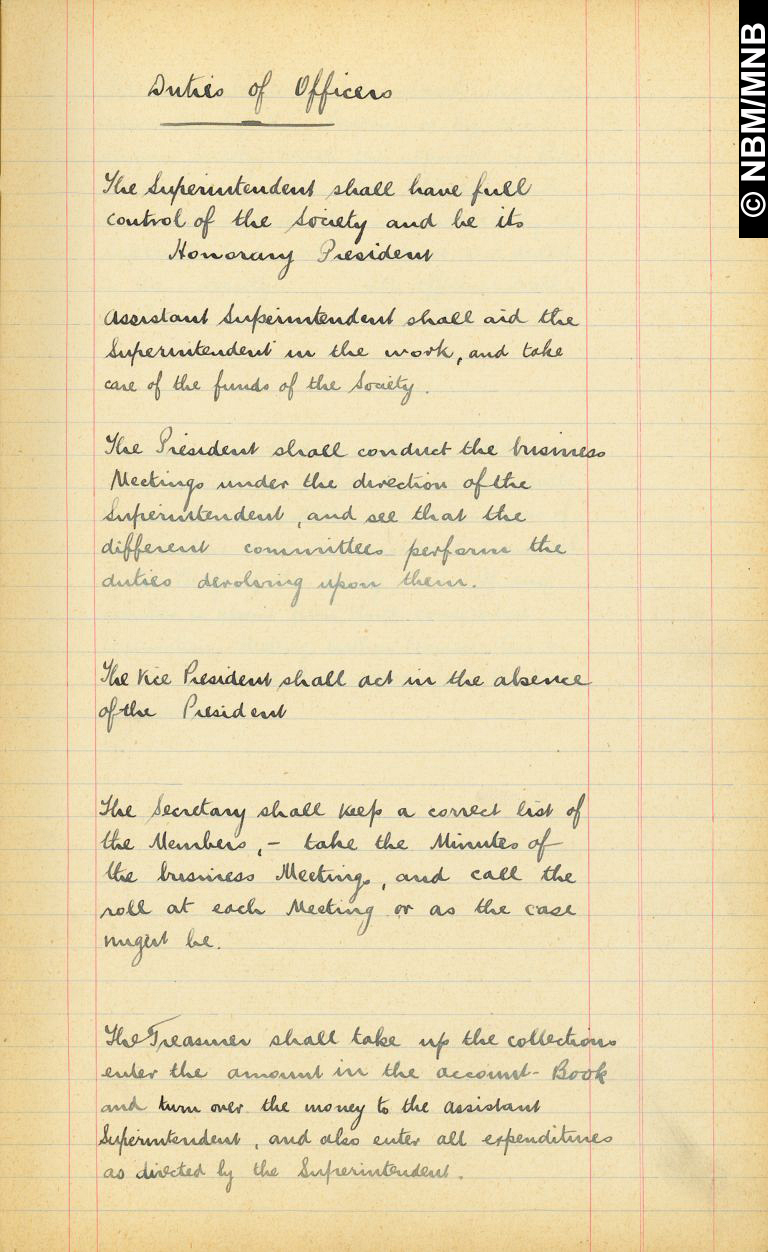 Duties of Officers
The Superintendent shall have full
control of the Society and be its
Honorary President
Assistant Superintendent shall aid the
Superintendent in the work, and take
care of the funds of the Society.
The President shall conduct the business
Meetings under the direction of the
Superintendent, and see that the
different committees perform the
duties devolving upon them.
The Vice President shall act in the absence
of the President
The Secretary shall keep a correct list of
the Members, - take the Minutes of
the business Meetings, and call the
roll at each Meeting or as the case
might be.
The Treasurer shall take up the collections
enter the amount in the account-Book
and turn over the money to the Assistant
Superintendent, and also enter all expenditures
as directed by the Superintendent.
© NBM/MNB